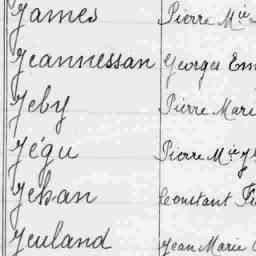 James Pierre Mie
Jeannessan Georges Em
Jeby Pierre Mari
Jégu Pierre Mie
Jehan Constant
Jeuland Jean Marie